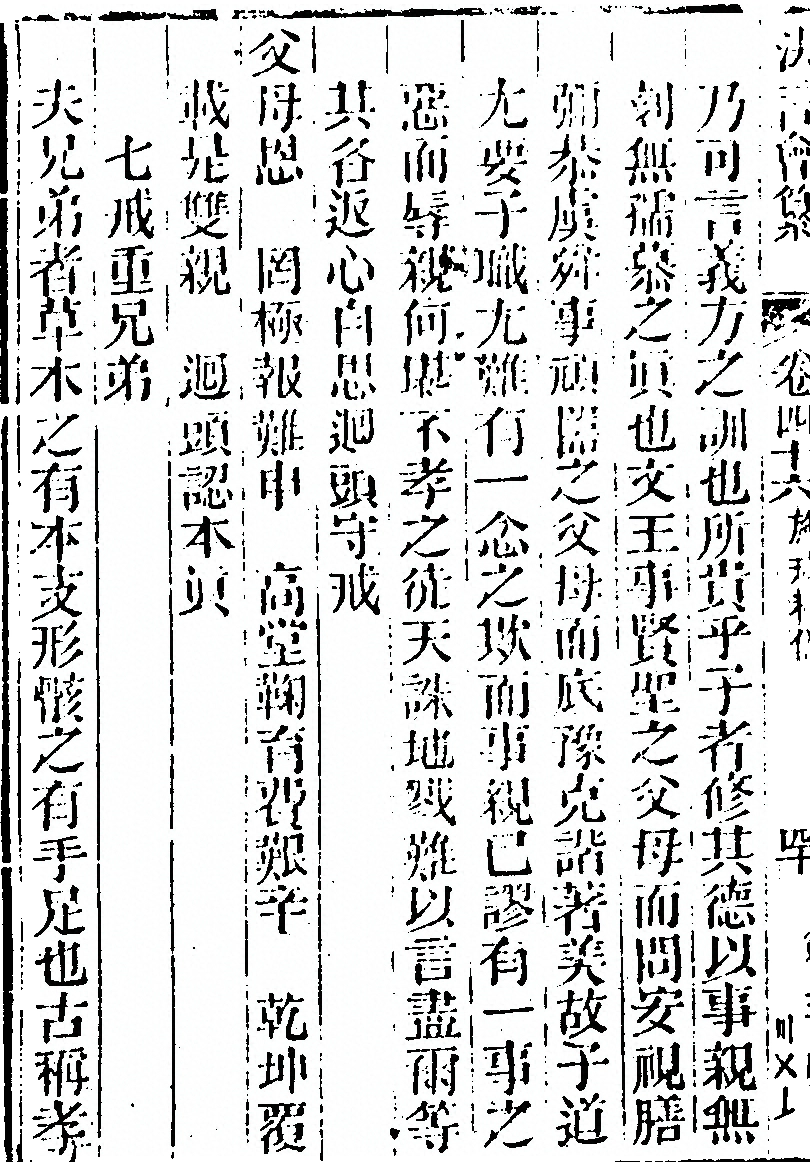 法言會纂 卷四十六 四
乃可言義方之訓也所貴乎子者修其德以事親無
剝無孺慕之眞也文王事賢聖之父母而問安視膳
彌恭虞舜事頑嚚之父母而底豫克諧著美故子道
尤要子職尤難有一念之欺而事親已謬有一事之
惡而辱親何堪不孝之徒天誅地戮難以言盡爾等
其各返心自思迴頭守戒
父母恩 罔極報難申 高堂鞠育費艱辛 乾坤覆
載是雙親 迴頭認本眞
七戒重兄弟
夫兄弟者草木之有本支形骸之有手足也古稱孝